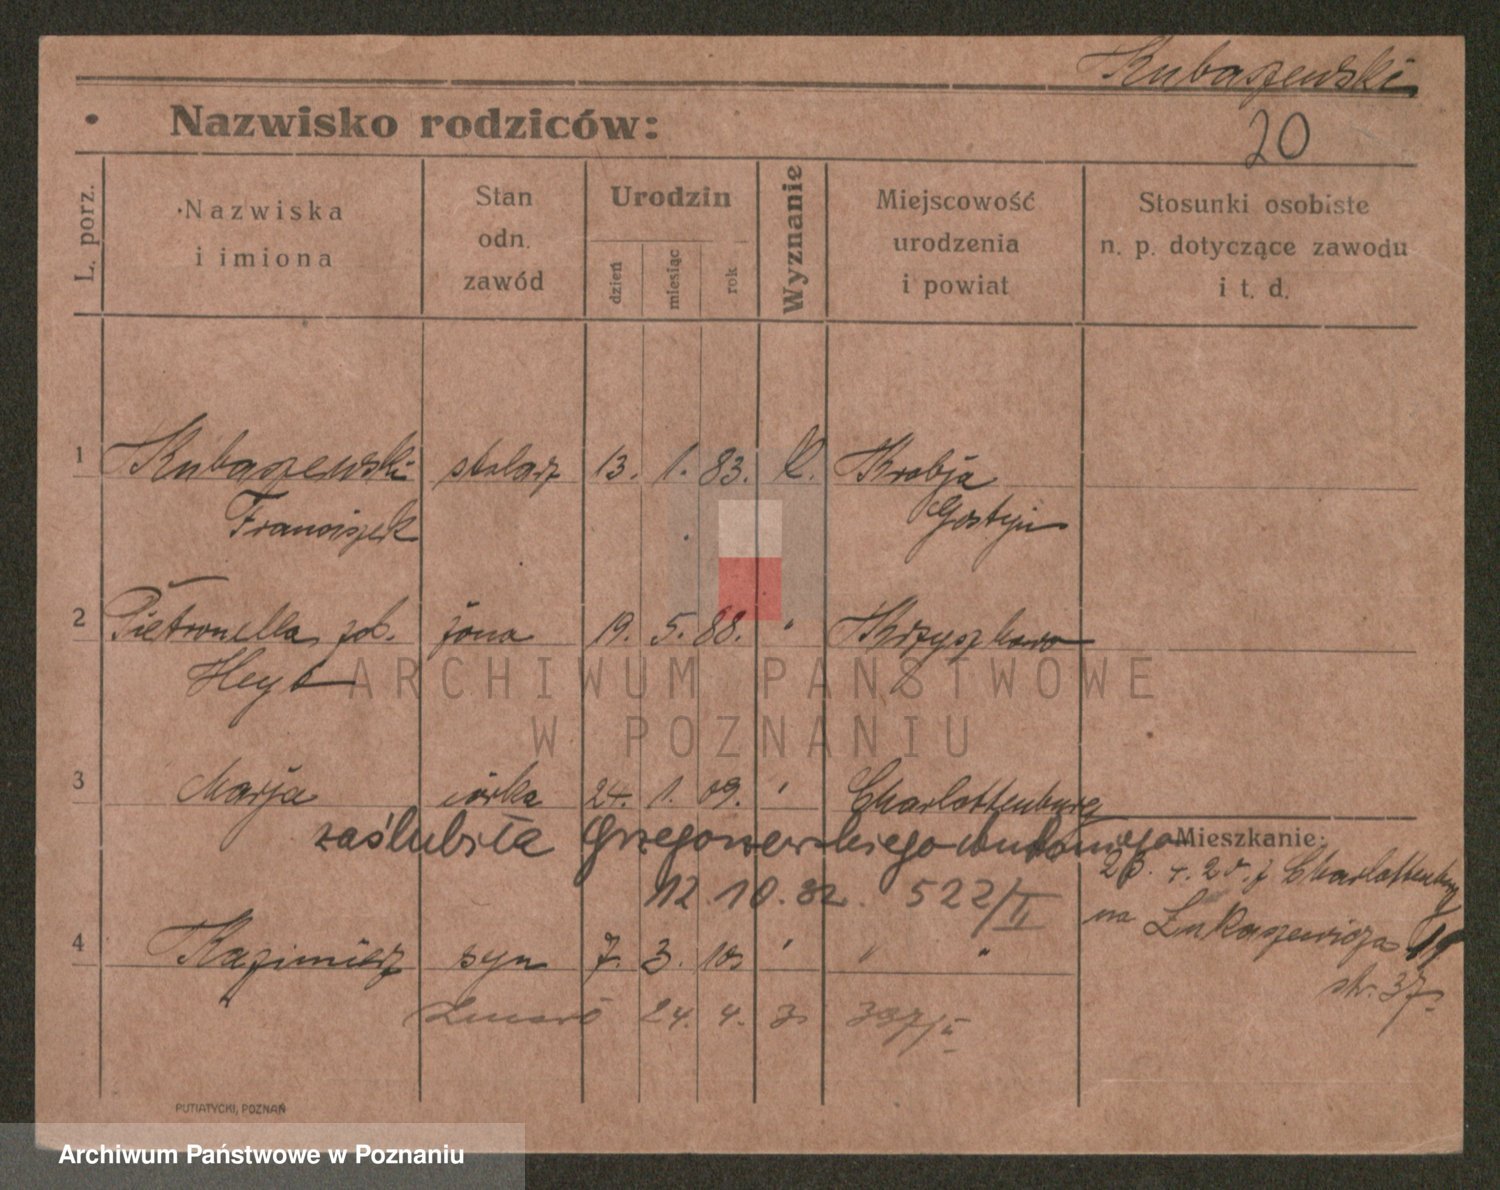 Kubaszewski
Nazwisko rodziców:
20
L. porz.
Nazwiska
i imiona
Stan
odn.
zawód
Urodzin
dzień
miesiąc
rok
Wyznanie
Miejscowość
urodzenia
i powiat
Stosunki osobiste
n. p. dotyczące zawodu
i t. d.
1 Kubaszewski stolarz 13. 1. 83. K. Krobja
Franciszek Gostyń
2 Pietronella zob. żona 19. 5. 88. " Krzyszkowo
Heyt
ARCHIWUM PAŃSTWOWE
W POZNANIU
3 Marja córka 24. 1. 09. " Charlottenburg
zaślubiła Grzegorzewskiego Antoniego
12.10.32. 522/II
Mieszkanie:
4. 20. z Charlottenburg
na Łukaszewicza 19
str. 37
4 Kazimierz syn 7. 3. 10 " " "
24. 4. 397/II
PUTIATYCKI, POZNAŃ
Archiwum Państwowe w Poznaniu